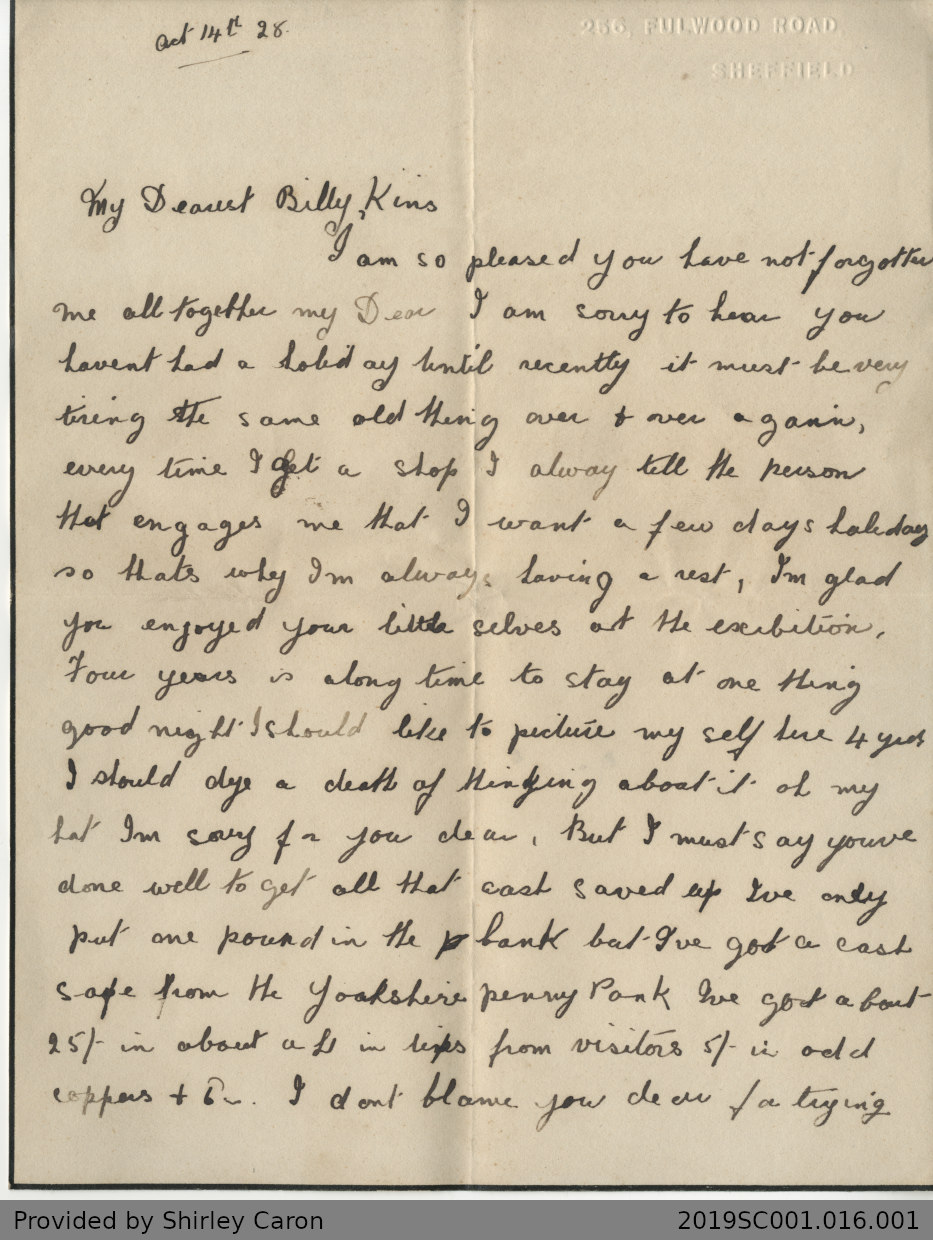 Oct 14th 28.
256, FULWOOD ROAD,
SHEFFIELD
My Dearest Billy Kins
I am so pleased you have not forgotten
me all together my Dear I am sorry to hear you
havent had a holiday until recently it must be very
tiring the same old thing over & over agann,
every time I get a shop I alway tell the person
that engages me that I want a few days holiday
so thats why Im always having a rest, I'm glad
you enjoyed your little selves at the exibition,
Four years is along time to stay at one thing
good night I should like to picture my self here 4 years
I should dye a death of thinking about it oh my
hat Im sorry for you dear, But I must say youve
done well to get all that cash saved up Ive only
put one pound in the bank but I've got a cash
safe from the Yorkshire penny Bank Ive got about
25/- in about a £1 in tips from visitors 5/- in odd
coppers & I dont blame you dear for trying
Provided by Shirley Caron
2019SC001.016.001